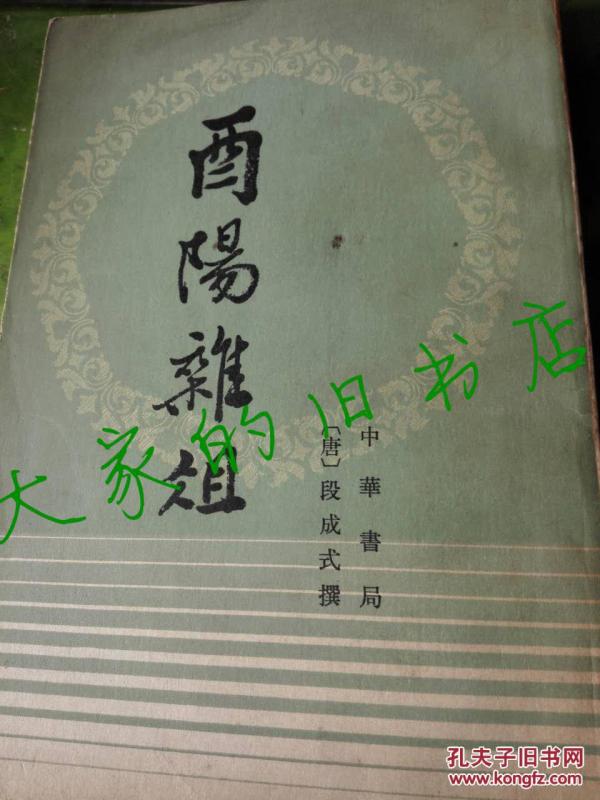 酉陽雜俎
〔唐〕段成式撰
中華書局
大家的旧书店
孔夫子旧书网
www.kongfz.com